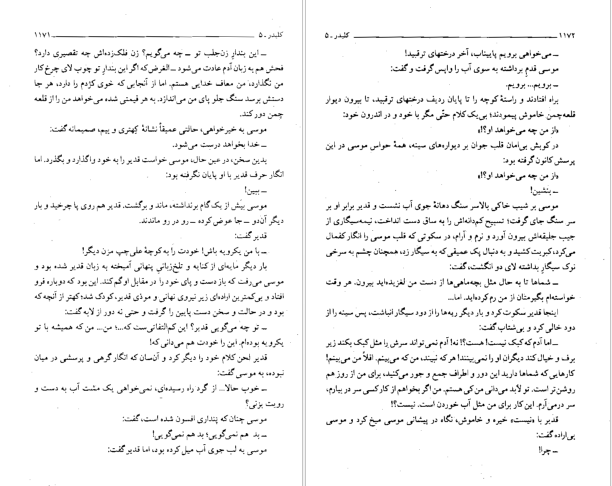 کلیدر ـ ۵
۱۱۷۱
ــ این بندار زن‌جلب تو ــ چه می‌گویم؟ زن فلک‌زده‌اش چه تقصیری دارد؟
فحش هم به زبان آدم عادت می‌شود ــ الغرض که اگر این بندار تو چوب لای چرخ کار
من نگذارد، من معاف خدایی هستم. اما از آنجایی که خوی کژدم را دارد، هر جا
دستش برسد سنگ جلو پای من می‌اندازد. به هر قیمتی شده می‌خواهد من را از قلعه
چمن دور کند.
موسی به خیرخواهی، حالتی عمیقاً نشانهٔ کِهتری و بیم، صمیمانه گفت:
ــ خدا بخواهد درست می‌شود.
بدین سخن، در عین حال، موسی خواست قدیر را به خود واگذارد و بگذرد. اما
انگار حرف قدیر با او پایان نگرفته بود:
ــ ببین!
موسی بیش از یک گام برنداشته، ماند و برگشت. قدیر هم روی پا چرخید و بار
دیگر آن‌دو ــ جا عوض کرده ــ رو در رو ماندند.
قدیر گفت:
ــ با من یکرویه باش! خودت را به کوچهٔ علی‌چپ مزن دیگر!
بار دیگر مایه‌ای از کنایه و تلخ‌زبانیِ پنهانی آمیخته به زبان قدیر شده بود و
موسی می‌رفت که باز دست و پای خود را در مقابل او گم کند. این بود که دوباره فرو
افتاد و بی‌کمترین اراده‌ای زیر نیروی نهانی و موذی قدیر، کودک شد؛ کهتر از آنچه که
بود و در حالت و سخن دست پایین را گرفت و حتی نه دور از لابه گفت:
ــ تو چه می‌گویی قدیر؟ این کم‌التفاتی‌ست که...؛ من... من که همیشه با تو
یکرویه بوده‌ام. این را خودت هم می‌دانی که!
قدیر لحن کلام خود را دیگر کرد و آن‌سان که انگار گرهی و پرسشی در میان
نبوده، به موسی گفت:
ــ خوب حالا... از گرد راه رسیده‌ای، نمی‌خواهی یک مشت آب به دست و
رویت بزنی؟
موسی چنان که پنداری افسون شده است، گفت:
ــ بد هم نمی‌گویی؛ بد هم نمی‌گویی!
موسی به لب جوی آب میل کرده بود، اما قدیر گفت:
۱۱۷۲
کلیدر ـ ۵
ــ می‌خواهی برویم پایناب، آخر درختهای ترقبید!
موسی قدم برداشته به سوی آب را واپس گرفت و گفت:
ــ برویم... برویم.
براه افتادند و راستهٔ کوچه را تا پایان ردیف درختهای ترقبید، تا بیرون دیوار
قلعه‌چمن خاموش پیمودند؛ بی‌یک کلام حتّی مگر با خود و در اندرون خود:
«از من چه می‌خواهد او؟!»
در کوبش بی‌امان قلب جوان بر دیواره‌های سینه، همهٔ حواس موسی در این
پرسش کانون گرفته بود:
«از من چه می‌خواهد او؟!»
ــ بنشین!
موسی بر شیب خاکی بالاسر سنگ دهانهٔ جوی آب نشست و قدیر برابر او بر
سر سنگ جای گرفت؛ تسبیح کم‌دانه‌اش را به ساق دست انداخت، نیمه‌سیگاری از
جیب جلیقه‌اش بیرون آورد و نرم و آرام، در سکوتی که قلب موسی را انگار کفمال
می‌کرد، کبریت کشید و به دنبال پک عمیقی که به سیگار زد، همچنان چشم به سرخی
نوک سیگارِ بداشته لای دو انگشت، گفت:
ــ شماها تا به حال مثل بچه‌ماهی‌ها از دست من لغزیده‌اید بیرون. هر وقت
خواسته‌ام بگیرمتان از من رم کرده‌اید. اما...
اینجا قدیر سکوت کرد و بار دیگر ریه‌ها را از دود سیگار انباشت، پس سینه را از
دود خالی کرد و بی‌شتاب گفت:
ــ اما آدم که کبک نیست! هست؟! نه! آدم نمی‌تواند سرش را مثل کبک بکند زیر
برف و خیال کند دیگران او را نمی‌بینند! هر که نبیند، من که می‌بینم. اقلاً من می‌بینم!
کارهایی که شماها دارید این دور و اطراف جمع و جور می‌کنید، برای من از روز هم
روشن‌تر است. تو لابد می‌دانی من کی هستم. من اگر بخواهم از کار کسی سر در بیارم،
سر درمی‌آرم. این کار برای من مثل آب خوردن است. نیست؟!
قدیر با «نیست» خیره و خاموش، نگاه در پیشانی موسی میخ کرد و موسی
بی‌اراده گفت:
ــ چرا!